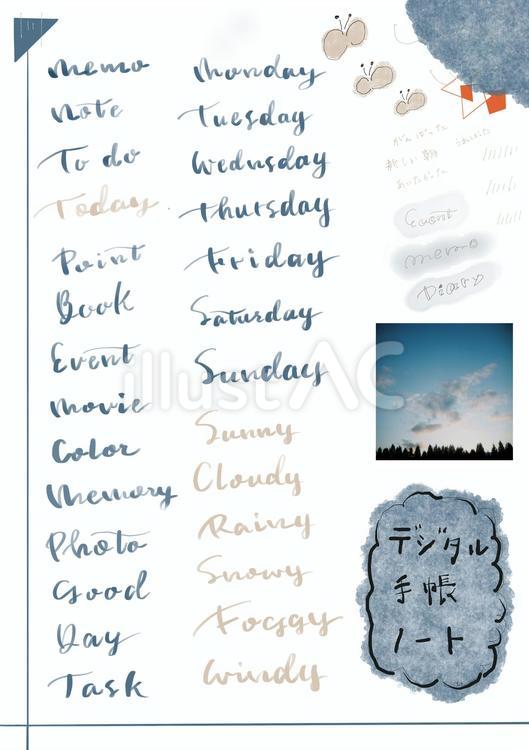 memo
note
To do
Today
Point
Book
Event
movie
Color
memory
Photo
Good
Day
Task
monday
Tuesday
Wednsday
Thursday
Friday
Saturday
Sunday
Sunny
Cloudy
Rainy
Snowy
Foggy
Windy
がんばった
新しい靴
あいたかった
Event
memo
Diary
デジタル
手帳
ノート
illustAC